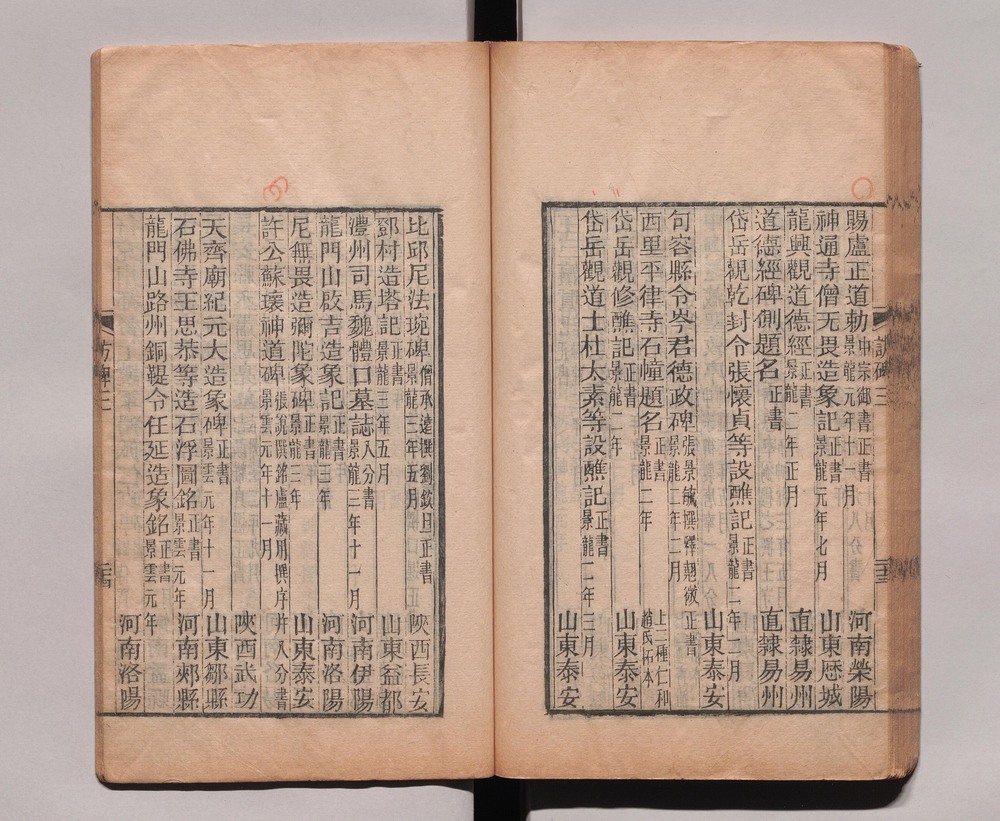 訪碑三
賜盧正道勅 中宗御書正書 景龍元年十一月 河南滎陽
神通寺僧无畏造象記 正書 景龍元年七月 山東歷城
龍興觀道德經 正書 景龍二年正月 直隸易州
道德經碑側題名 正書 直隸易州
岱岳觀乾封令張懷貞等設醮記 正書 景龍二年二月 山東泰安
句容縣令岑君德政碑 張景毓撰釋翹微正書 景龍二年二月
西里平律寺石幢題名 正書 景龍二年 上二種仁和趙氏拓本
岱岳觀修醮記 正書 景龍二年 山東泰安
岱岳觀道士杜大素等設醮記 正書 景龍二年三月 山東泰安
比邱尼法琬碑 僧承遠撰劉欽旦正書 景龍三年五月 陝西長安
鄧村造塔記 正書 景龍三年五月 山東益都
澧州司馬魏體口墓誌 八分書 景龍三年十一月 河南伊陽
龍門山啟吉造象記 正書 景龍三年 河南洛陽
尼無畏造彌陀象碑 正書 景龍三年 山東泰安
許公蘇瓌神道碑 張說撰銘盧藏用撰序并八分書 景雲元年十一月
陝西武功
天齊廟紀元大造象碑 正書 景雲元年十一月 山東鄒縣
石佛寺王思恭等造石浮圖銘 正書 景雲元年 河南郟縣
龍門山路州銅鞮令任延造象銘 正書 景雲元年
河南洛陽
訪碑三